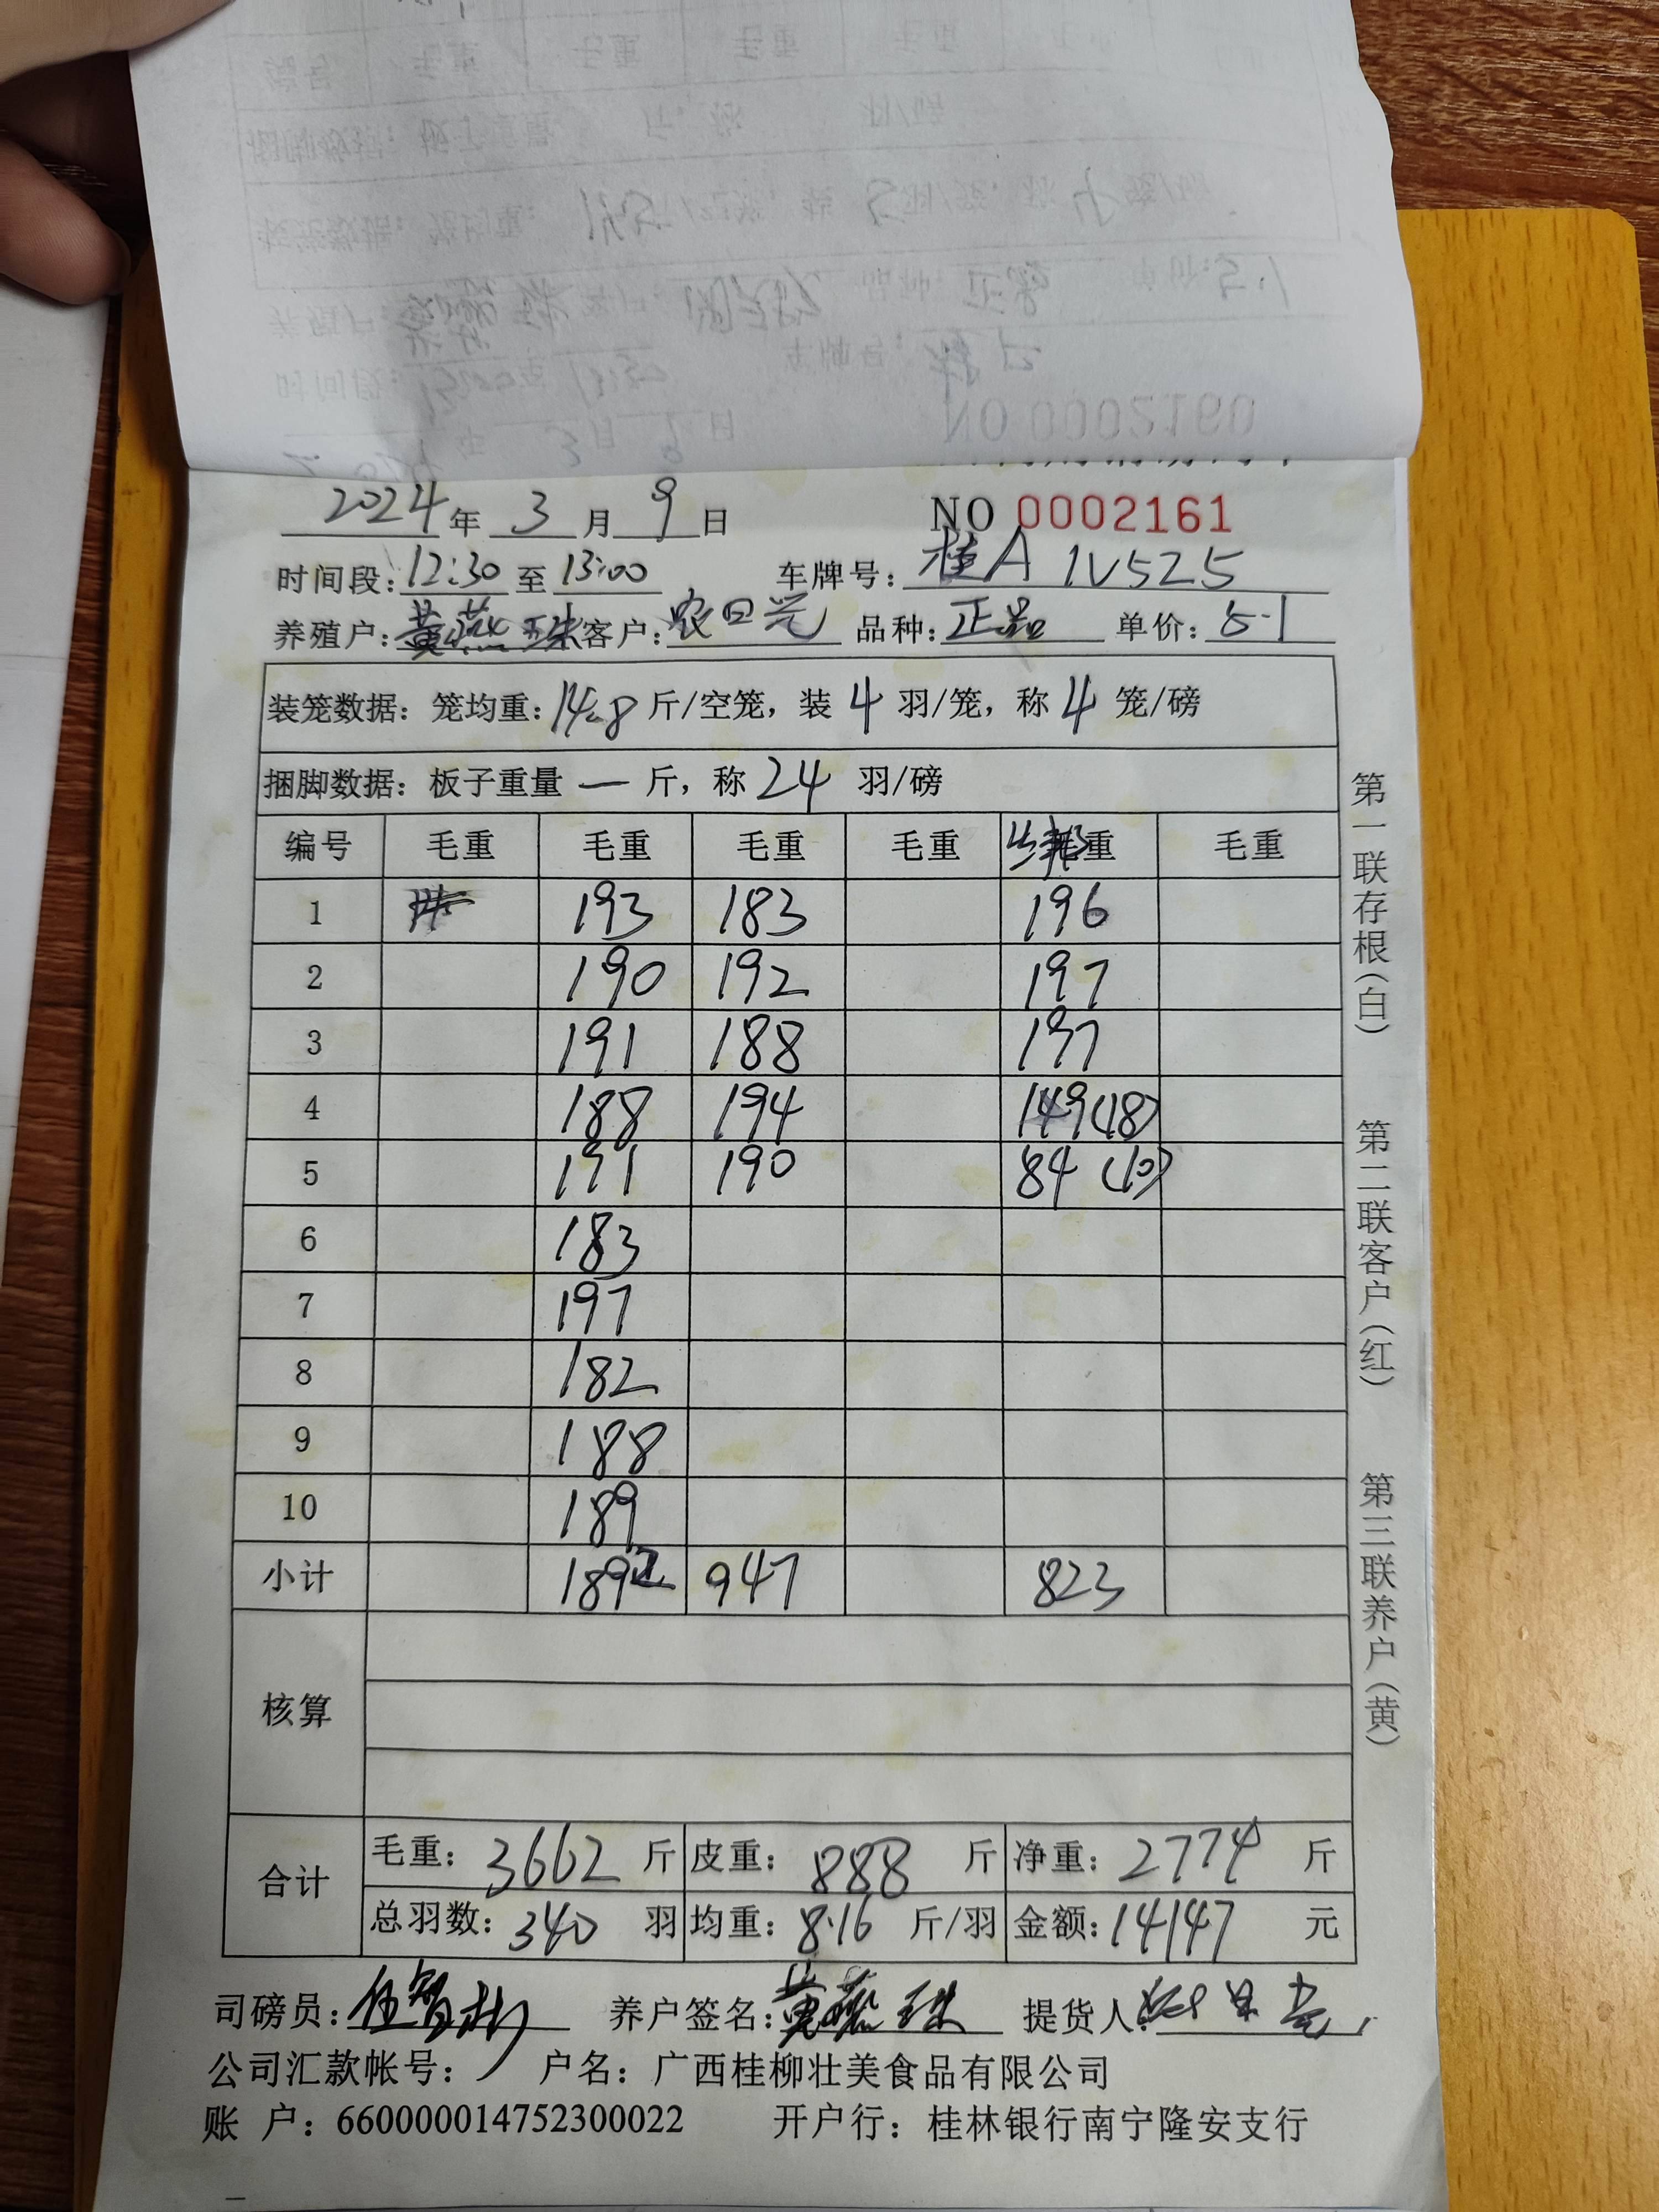 2024年 3月 9日 NO 0002161
时间段:12:30 至 13:00 车牌号: 桂A 1V525
养殖户: 黄燕珠 客户: 农日 品种: 正品 单价: 5.1
装笼数据: 笼均重: 14.8 斤/空笼, 装 4 羽/笼, 称 4 笼/磅
捆脚数据: 板子重量 一 斤, 称 24 羽/磅
编号 毛重 毛重 毛重 毛重 绑 重 毛重
1 193 183 196
2 190 192 197
3 191 188 197
4 188 194 149(18)
5 191 190 84 (10)
6 183
7 197
8 182
9 188
10 189
小计 1892 947 823
核算
合计 毛重: 3662 斤 皮重: 888 斤 净重: 2774 斤
总羽数: 340 羽 均重: 8.16 斤/羽 金额: 14147 元
司磅员: 养户签名: 黄燕珠 提货人:
公司汇款帐号: 户名: 广西桂柳壮美食品有限公司
账 户: 660000014752300022 开户行: 桂林银行南宁隆安支行
第一联存根(白) 第二联客户(红) 第三联养户(黄)